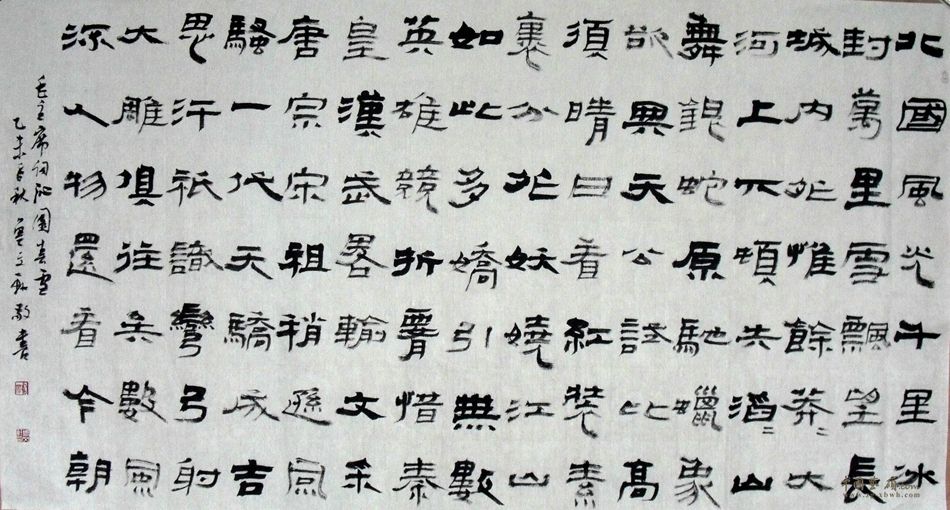 北國風光千里冰
封萬里雪飄望長
城内外惟餘莽〻大
河上下頓失滔〻山
舞銀蛇原馳蠟象
欲與天公試比高
須晴日看紅裝素
裹分外妖嬈江山
如此多嬌引無數
英雄競折腰惜秦
皇漢武畧輸文采
唐宗宋祖稍遜風
騷一代天驕成吉
思汗祇識彎弓射
大雕俱往矣數風
流人物還看今朝
毛主席詞沁園春雪
乙未 秋 敬書